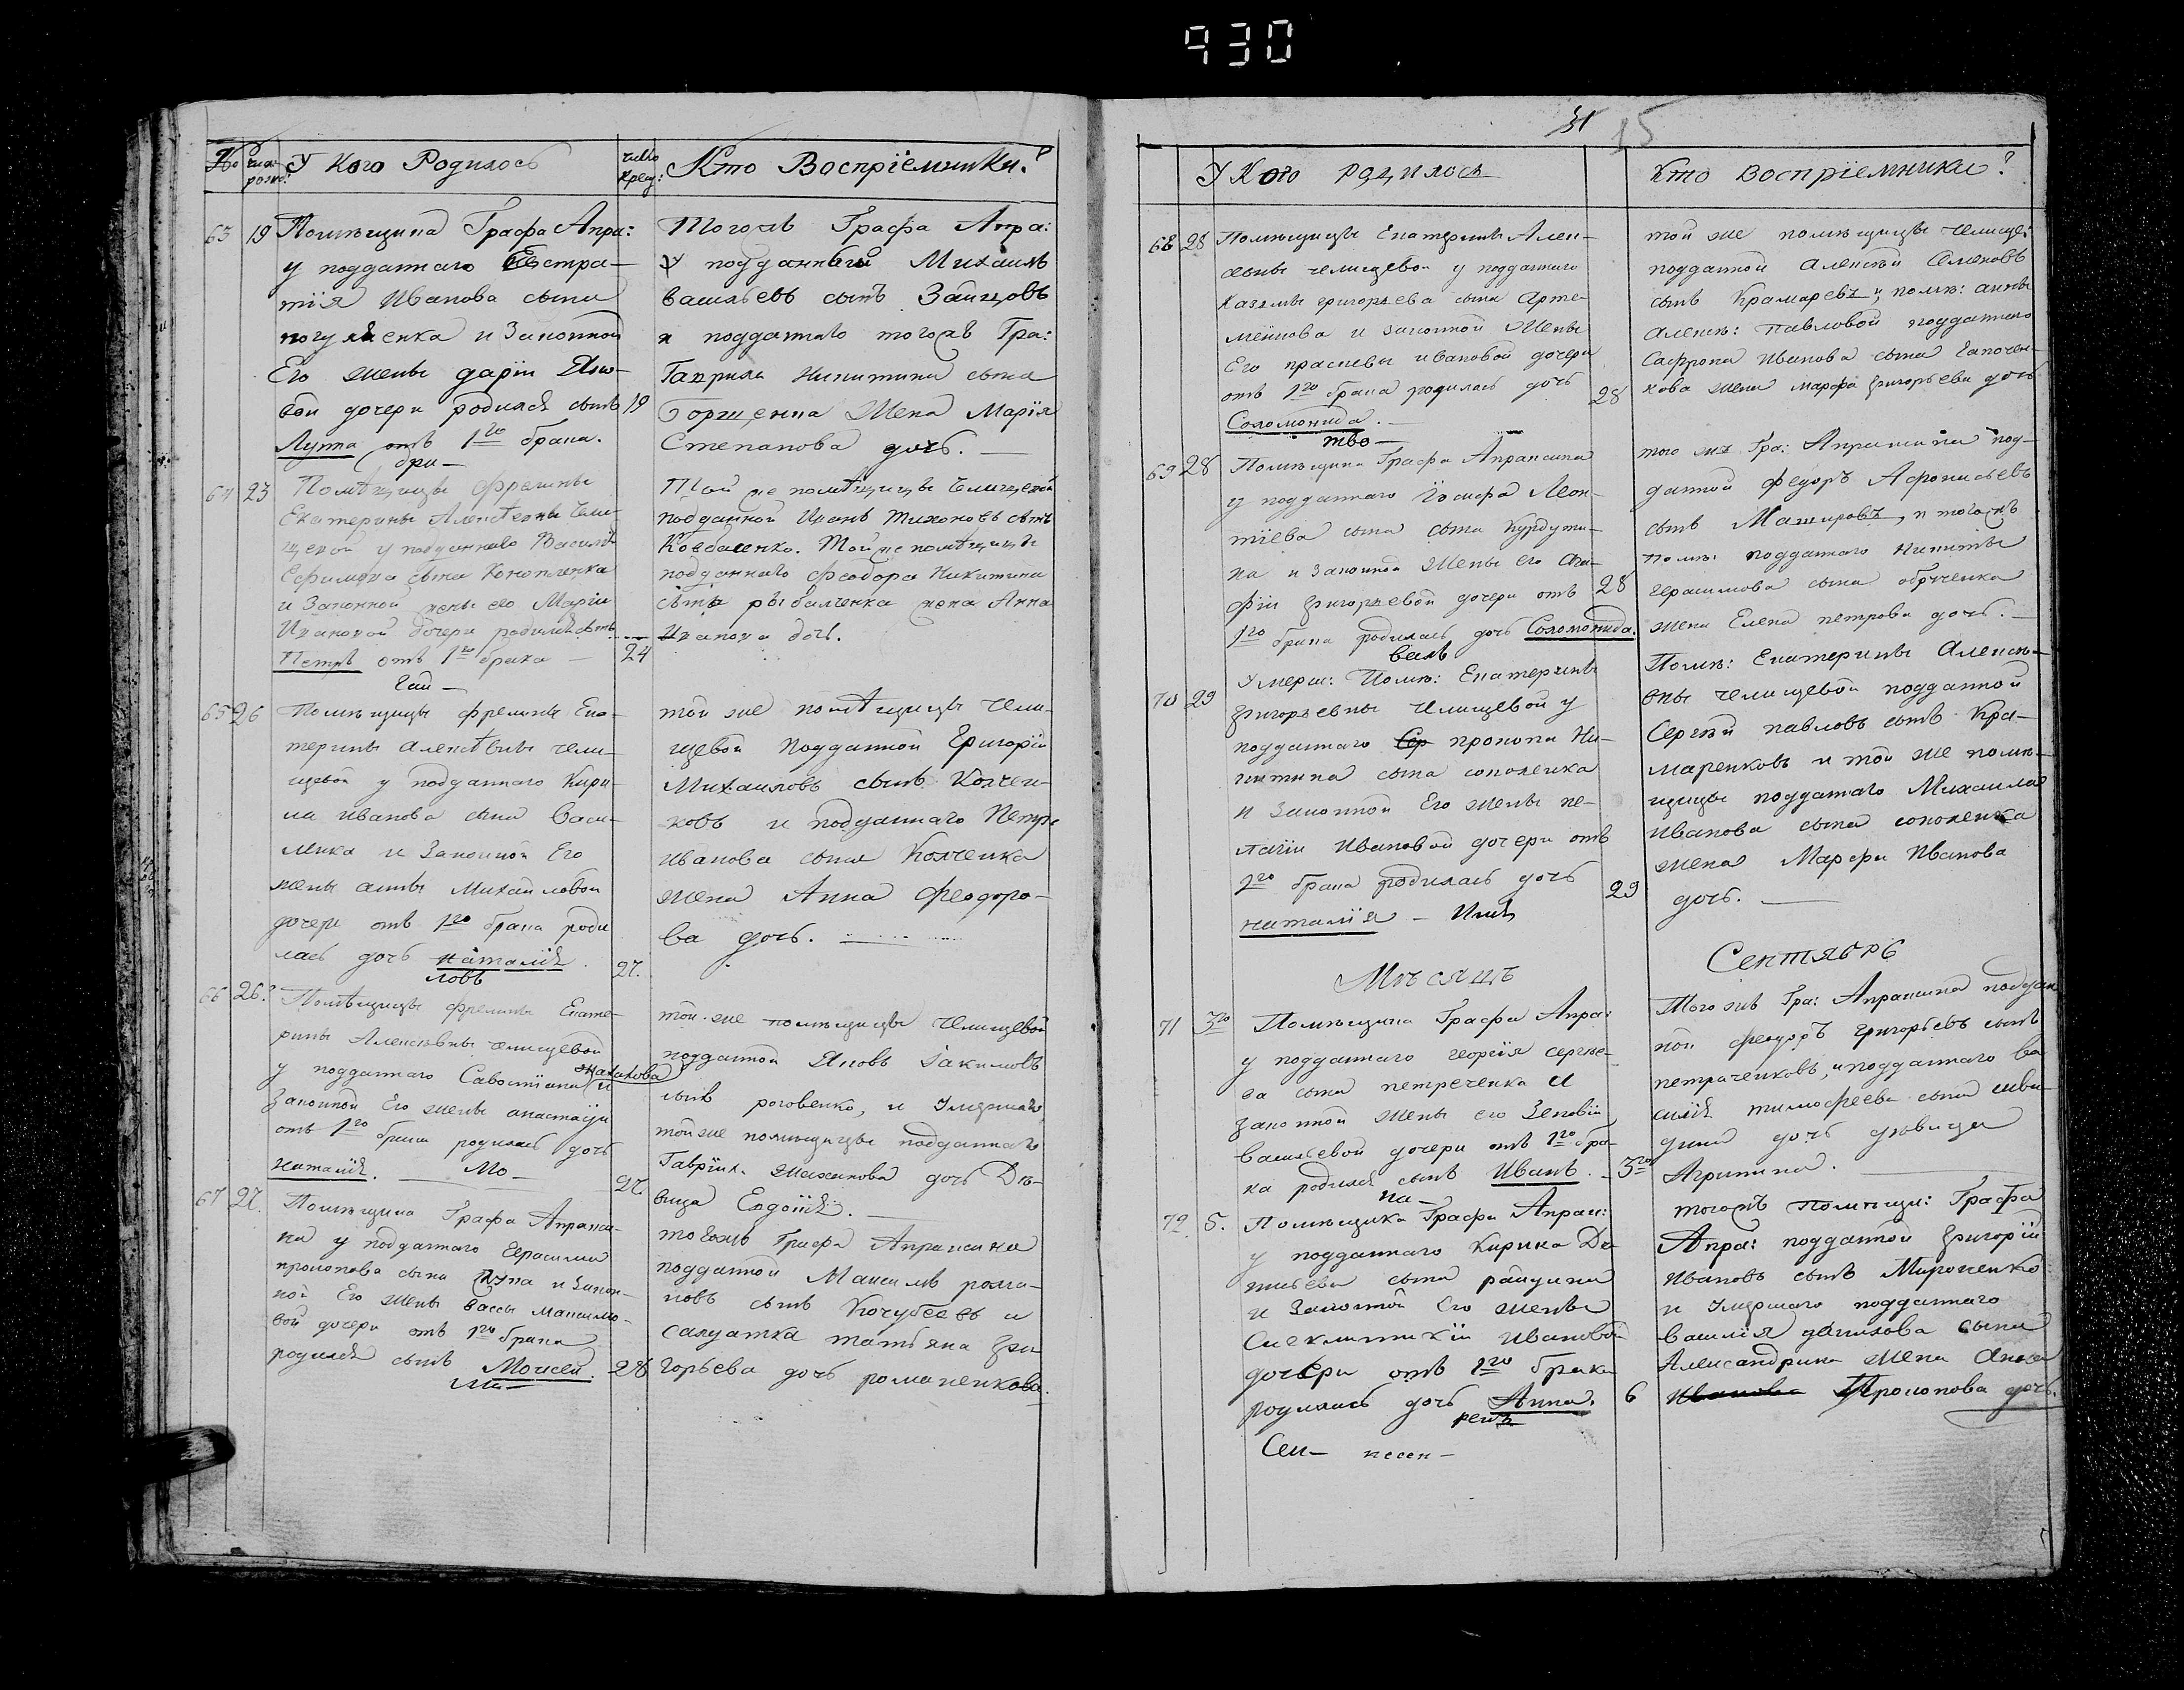 930
31 15
№ число рожд: У Кого Родилось число крещ: Кто Воспрїемники?
63 19 Помѣщика Графа Апра:
у подданнаго Евстра-
тїя Иванова сына
погуляенка и Законной
Его жены дарїи Яко-
вой дочери родился сынъ 19
Лупа отъ 1го брака.
Тогожъ Графа Апра:
подданный Михаилъ
васильевъ сынъ Зайцовъ
и подданнаго тогожъ Гра:
Гаврила Никитина сына
Горщенка Жена Марїя
Степанова дочь.
бри-
64 23 Помѣщицы фрелины
Екатерины Алексѣевны Чели-
щевой у подданнаго Василія
Ефимова сына Конопленка
и Законной жены его Марїи
Ивановой дочери родился сынъ
Петръ отъ 1го брака — 24
Той же помѣщицы Челищевой
подданной Иванъ Тихоновъ сынъ
Коваленко. Той же помѣщицы
подданнаго Феодора Никитина
сына рыбалченка жена Анна
Иванова дочь.
Гай-
65 26 Помѣщицы фрелины Ека-
терины алексѣвны чели-
щевой у подданнаго Кири-
ла иванова сына Васи-
лика и Законной Его
жены анны Михайловой
дочери отъ 1го брака роди
лась дочь наталїя. 27.
той же помѣщицы Чели-
щевой подданной Григорїй
Михаиловъ сынъ Колчен-
ковъ и подданнаго Петра
иванова сына Колченка
жена Анна Феодоро-
ва дочь.
ловъ
66 26. Помѣщицы фрелины Екате-
рины Алексѣвны челищевой
у подданнаго Савостїана и
Законной Его жены анастасїи
отъ 1го брака родилась дочь
наталїя. 27.
той же помѣщицы Челищевой
подданной Яковъ Іакимовъ
сынъ роговенко, и умершаго
той же помѣщицы подданнаго
Гаврїил. дочь Дѣ-
вица Евдокїя.
Мо-
67 27. Помѣщика Графа Апракси-
на у подданнаго Герасима
прокопова сына и Закон-
ной Его жены вассы максимо-
вой дочери отъ 1го брака
родился сынъ Моисей. 28
тогожъ Графа Апраксина
подданной Максимъ рома-
новъ сынъ Кочубеевъ и
салдатка татьяна Гри
горьева дочь романенкова.
У Кого родилося Кто Воспрїемники?
68 28 Помѣщицы Екатерины Алек-
сѣвны челищевой у подданнаго
Казьмы григорьева сына Арте-
меинова и законной Жены
Его прасковы ивановой дочери
отъ 1го брака родилась дочь 28
Соломонида.
той же помѣщицы челище:
подданной алексѣй Семеновъ
сынъ Крамаревъ, и помѣ: анны
алексѣ: павловой подданнаго
Сафрона иванова сына Гапочен-
кова жена марфа григорьева дочь
тво-
69 28 Помѣщика Графа Апраксина
у подданнаго Іосифа Леон-
тїева сына сына Курдупи-
на и Законной Жены его
григорьевой дочери отъ 28
1го брака родилась дочь Соломонида.
того жъ Гра: Апраксина под-
данной федоръ Афонасьевъ
сынъ Машировъ, и тогожъ
помѣ: подданнаго Никиты
герасимова сына обрученка
жена Елена петрова дочь.
валъ
70 29 Умерш: Помѣ: Екатерины
григорьевны Челищевой у
подданнаго прокопа Ни-
китина сына соколенка
и Законной Его жены пе-
лагїи Ивановой дочери отъ
1го брака родилась дочь 29
наталїя
Помѣ: Екатерины Алексѣ-
вны челищевой подданной
Сергѣй павловъ сынъ Кра-
маренковъ и той же помѣ-
щицы подданнаго Михаила
иванова сына соколенка
жена Марфа Иванова
дочь.
Мѣсяцъ Сентябрь
71 3го Помѣщика Графа Апра:
у подданнаго георгїя сергѣе-
ва сына петреченка и
законной жены его Зеновїи
васильевой дочери отъ 1го бра-
ка родился сынъ Иванъ. 3го
Того жъ Гра: Апраксина поддан
ной феодоръ григорьевъ сынъ
петраченковъ, и подданнаго ва
силїя тимофеева сына шви-
дина дочь дѣвица
Агрипина.
на-
72. 5. Помѣщика Графа Апрак:
у подданнаго Кирика Де
ева сына райцина
и Законной Его жены
Сиеклитикїи Ивановой
дочери отъ 1го брака
родилась дочь Анна. 6
тогожъ Помѣщи: Графа
Апра: подданной Григорїй
Ивановъ сынъ Мироненко
и умершаго подданнаго
василїя данилова сына
Александрина жена Анна
Прокопова дочь.
Сен-